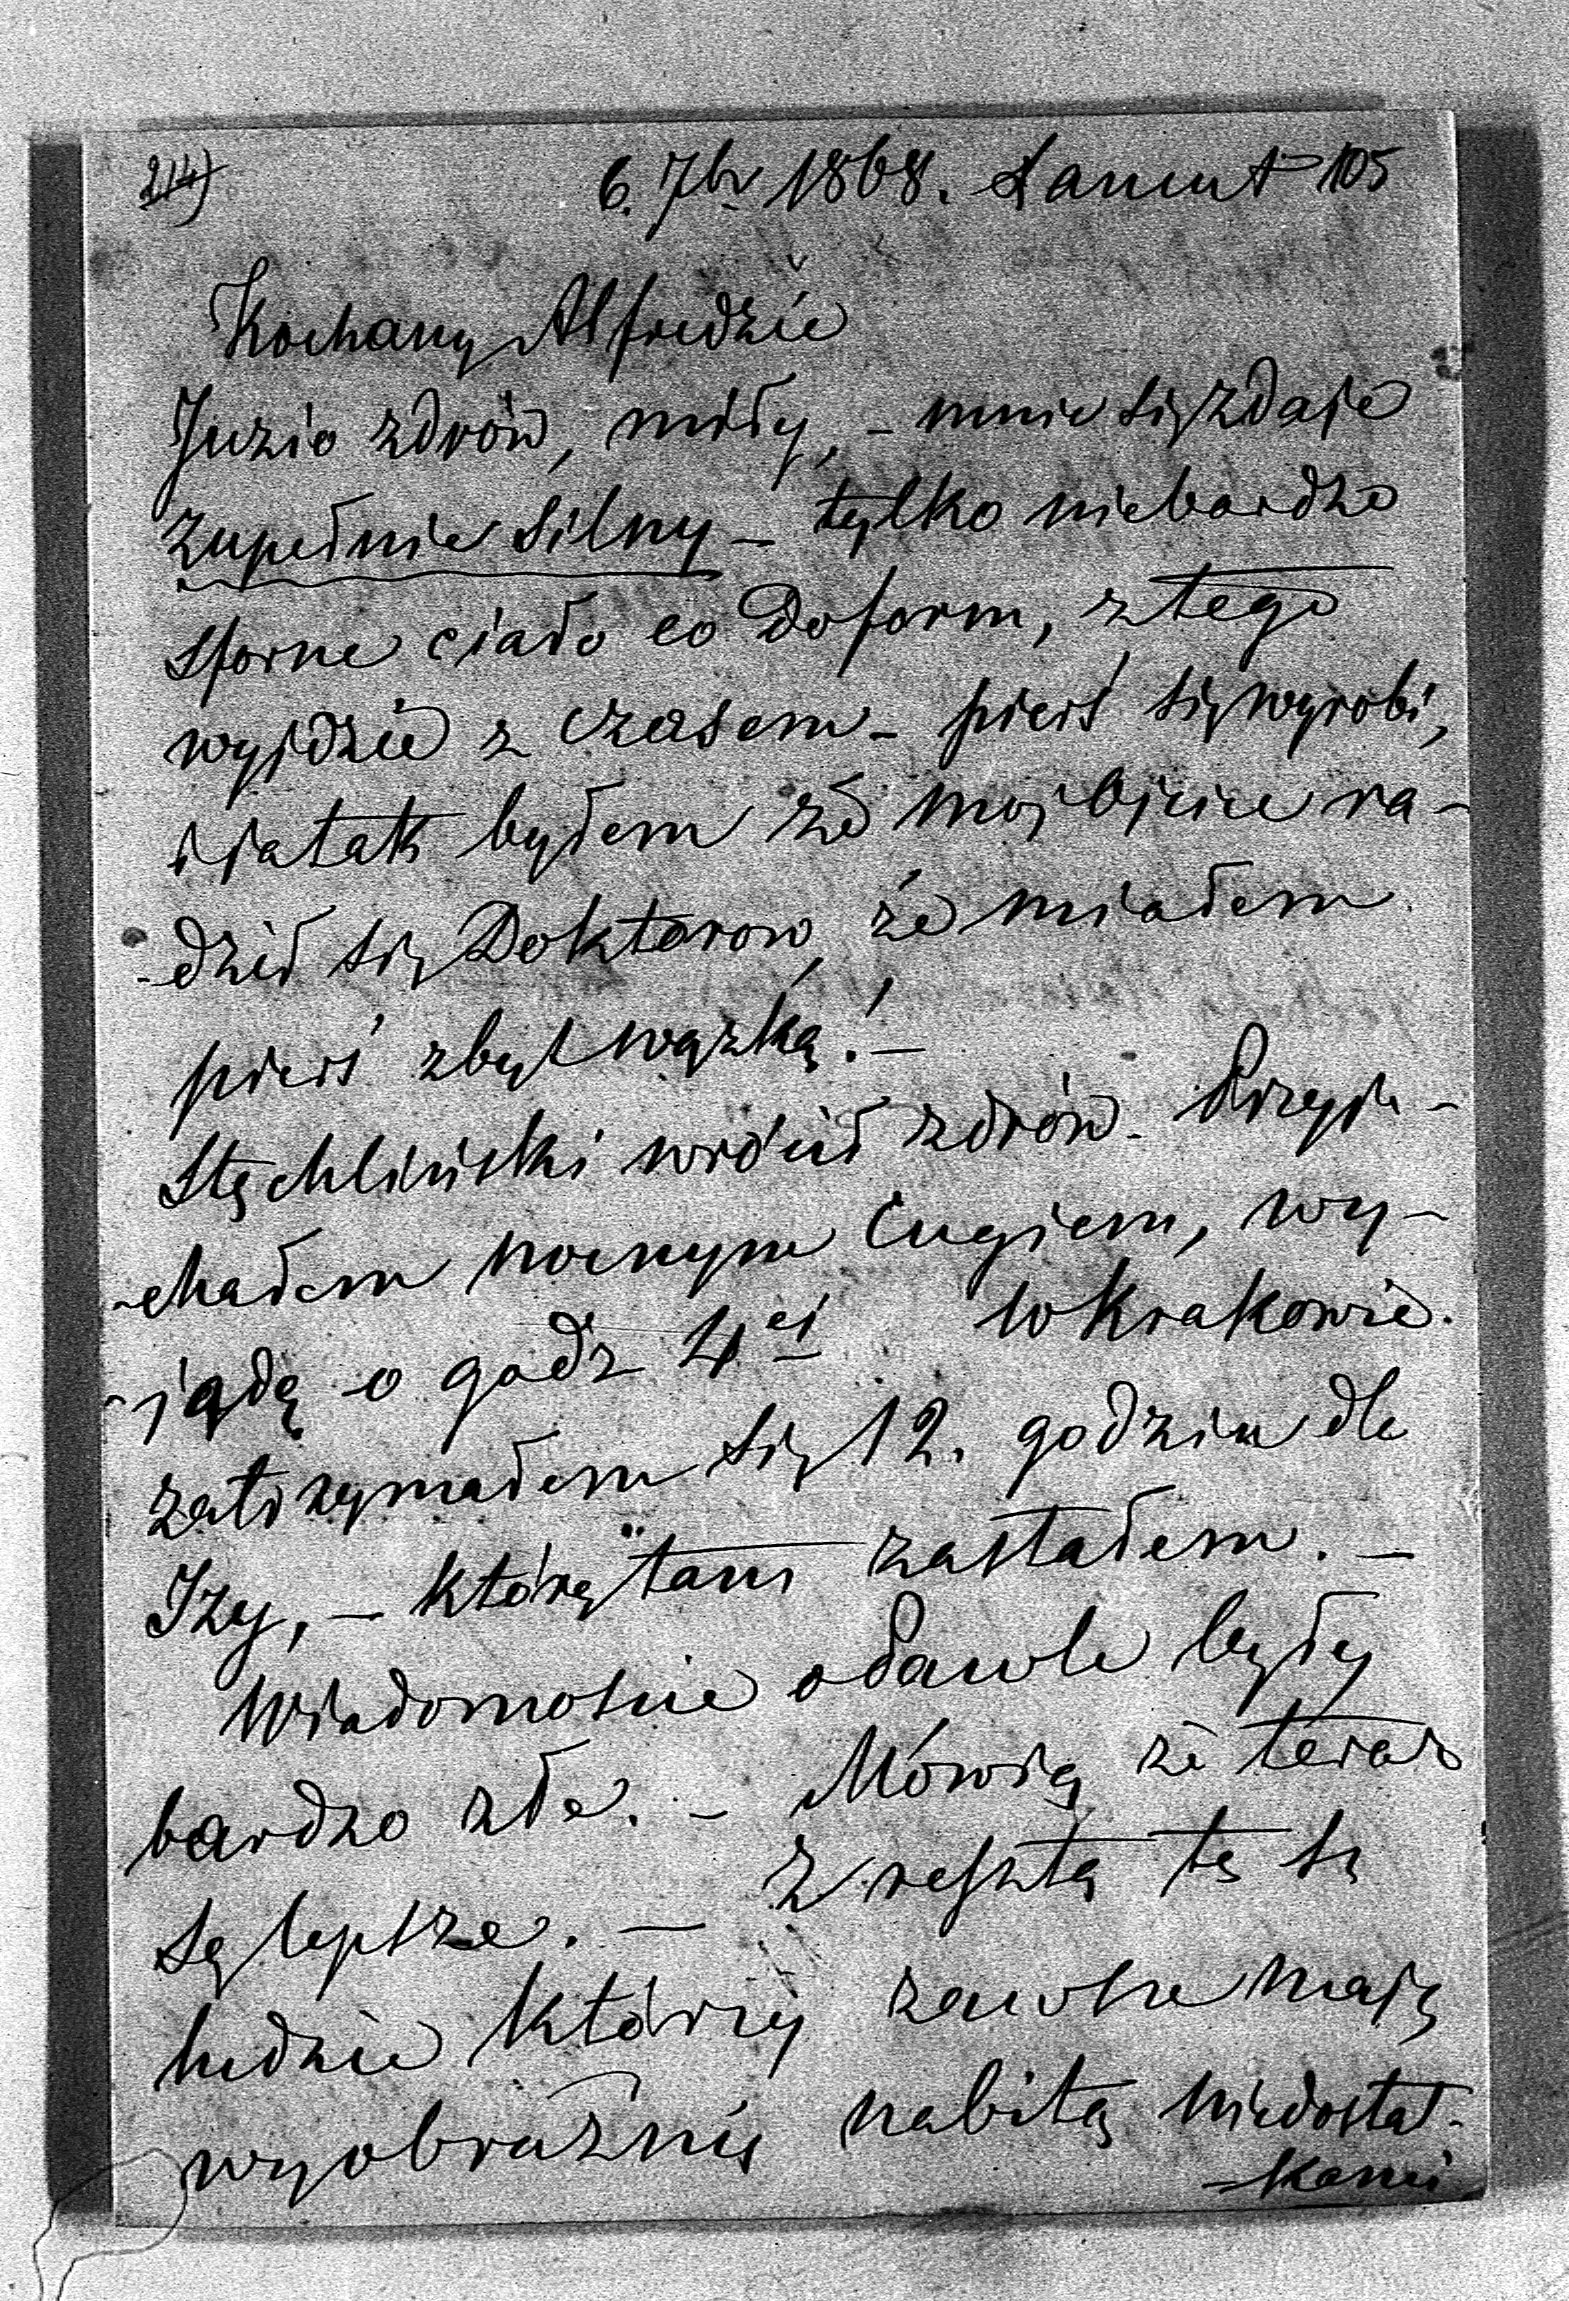 214)
6. 7br 1868. Łancut 105
Kochany Alfredzie
Juzio zdrów, miły, – mnie się zdaje
zupełnie silny – tylko niebardzo
sforne ciało co do form, z tego
wyjdzie z czasem – pierś się wyrobi,
i ja tak byłem że moj Ojciec ra-
-dził się Doktorow że miałem
pierś zbyt wązką! –
Stęchliński wrócił zdrów. Przyje-
-chałem nocnym Cugiem, wy-
-jadę o godz 4ej W Krakowie
zatrzymałem się 12. godzin dla
Izy, – którą tam zastałem. –
Wiadomoście o Pawle były
bardzo złe. – Mówią że teraz
są lepsze. – Z resztą to są
ludzie którzy zawsze mają
wyobraźnię nabitą niedostat-
-kami